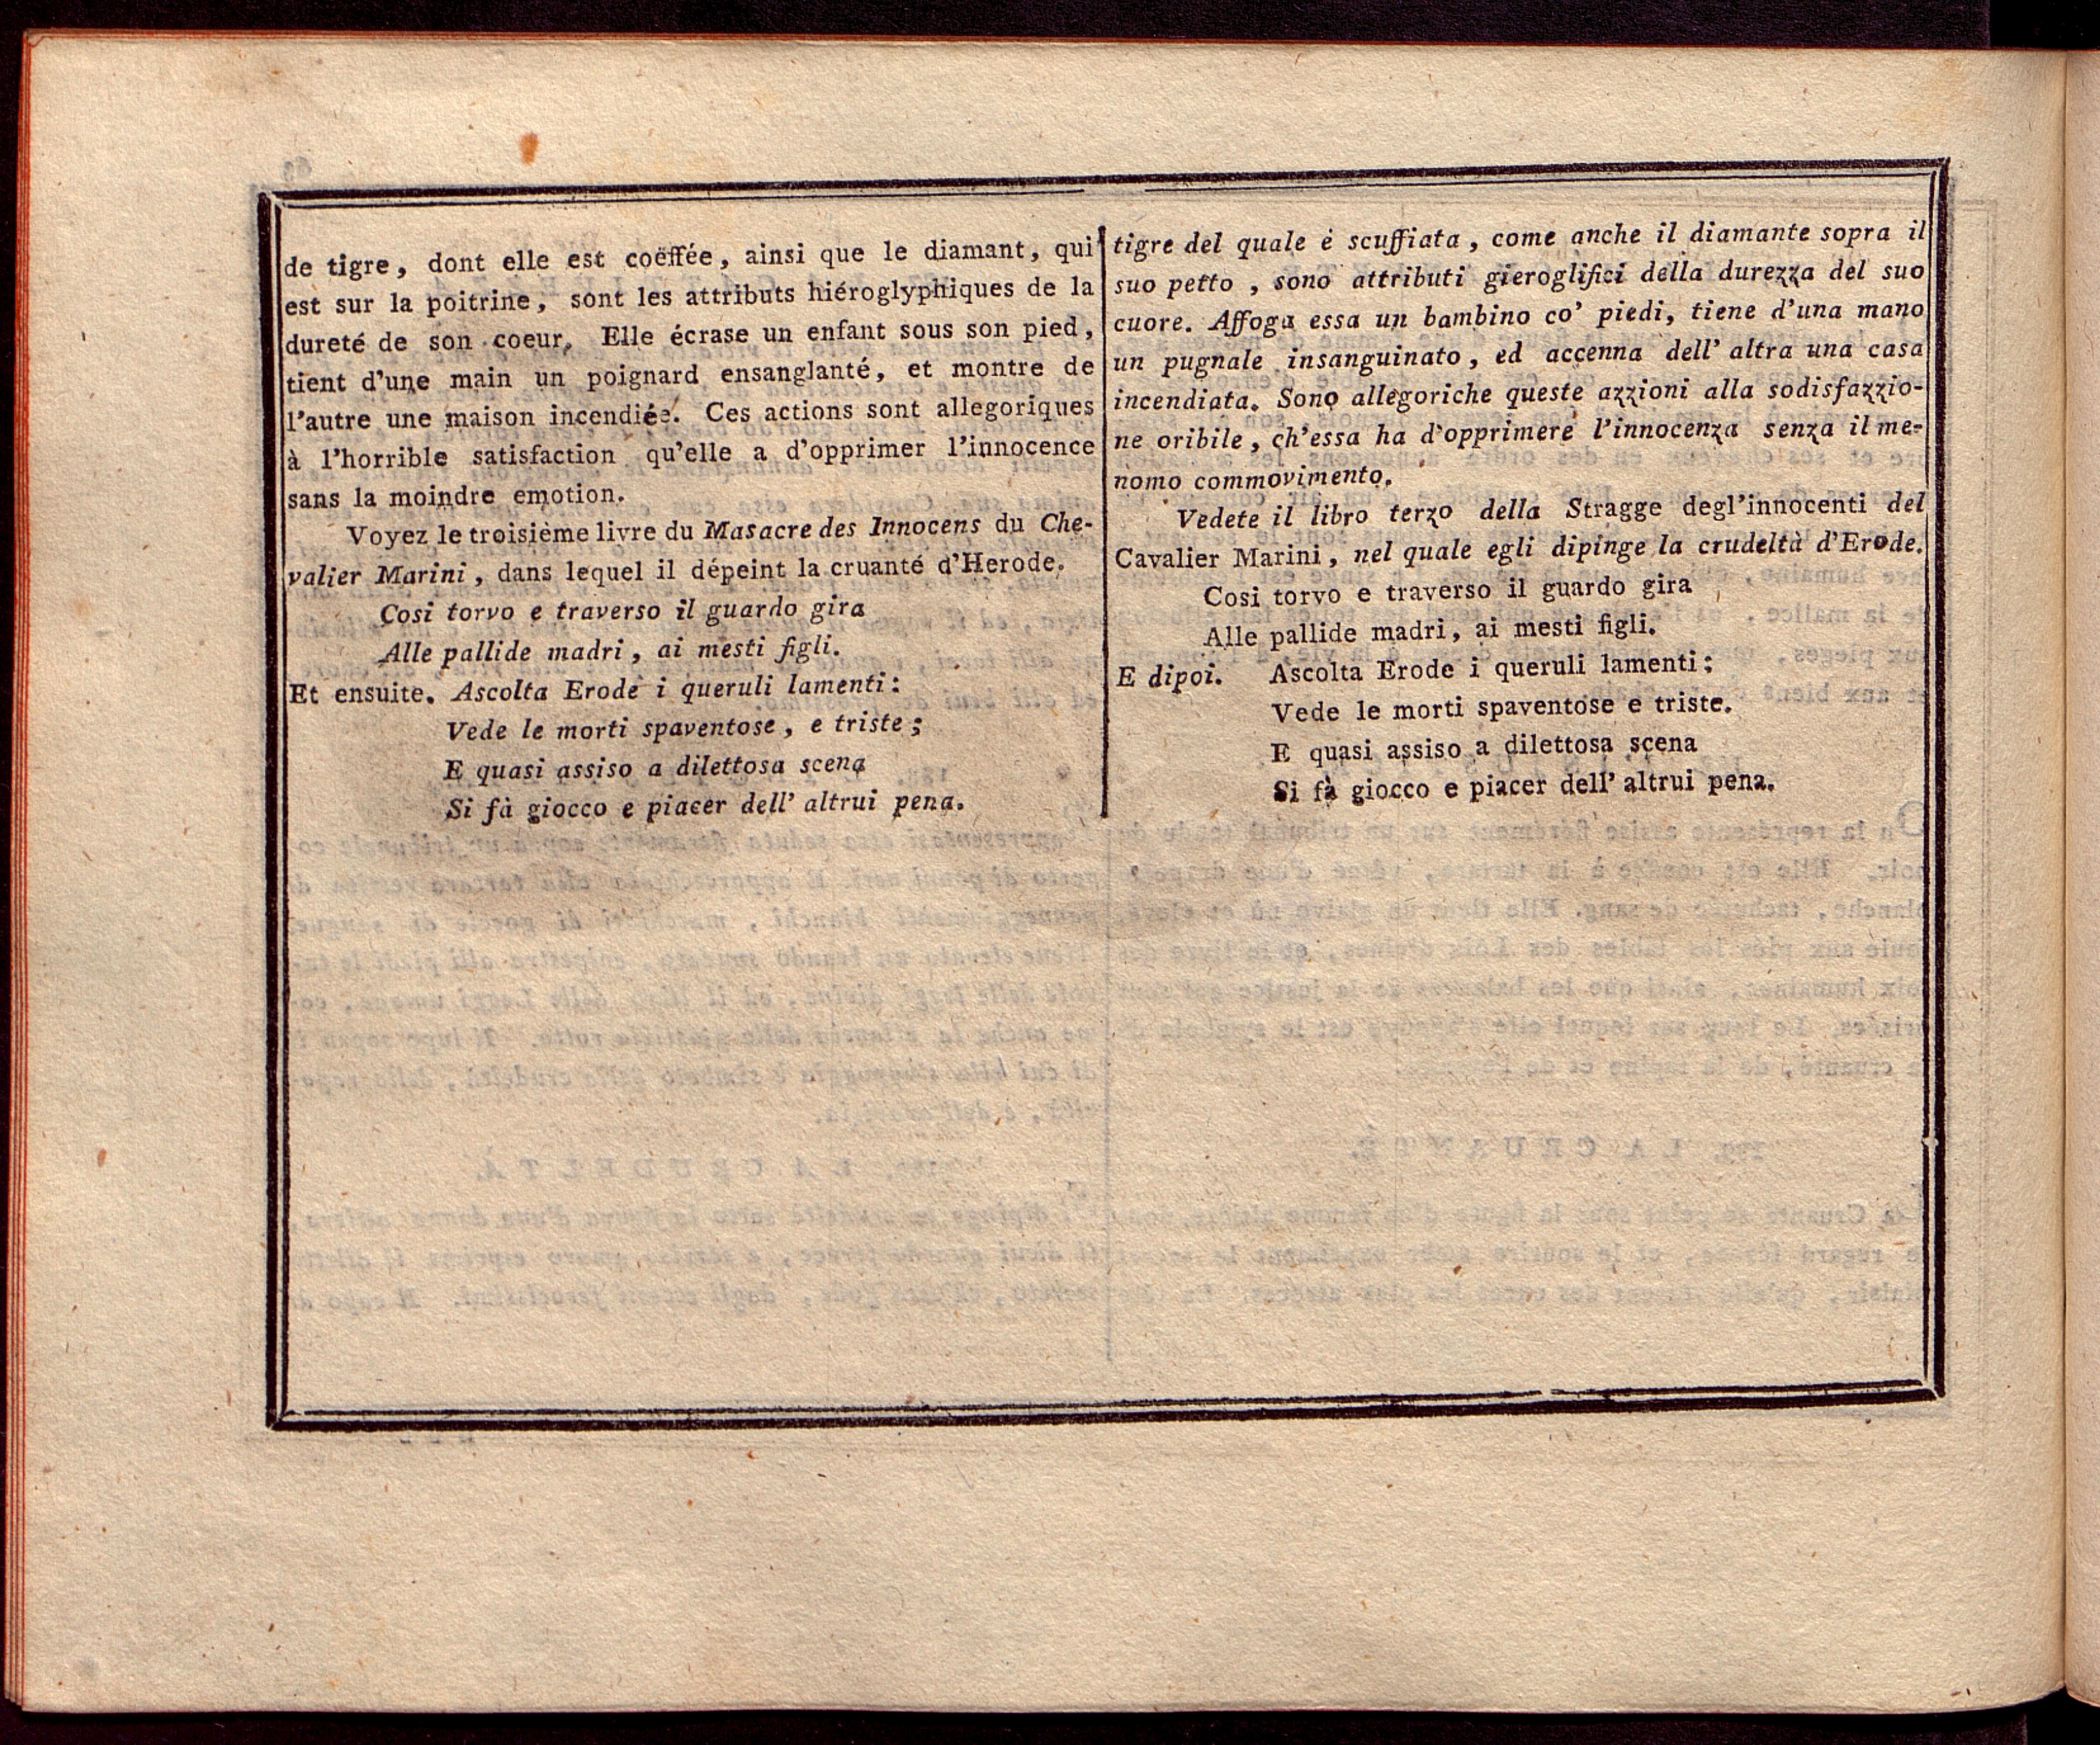 de tigre, dont elle est coëffée, ainsi que le diamant, qui
est sur la poitrine, sont les attributs hiéroglyphiques de la
dureté de son coeur. Elle écrase un enfant sous son pied,
tient d'une main un poignard ensanglanté, et montre de
l'autre une maison incendiée. Ces actions sont allegoriques
à l'horrible satisfaction qu'elle a d'opprimer l'innocence
sans la moindre emotion.
Voyez le troisième livre du Masacre des Innocens du Che-
valier Marini, dans lequel il dépeint la cruanté d'Herode.
Cosi torvo e traverso il guardo gira
Alle pallide madri, ai mesti figli.
Et ensuite. Ascolta Erode i queruli lamenti:
Vede le morti spaventose, e triste;
E quasi assiso a dilettosa scena
Si fà giocco e piacer dell' altrui pena.
tigre del quale è scuffiata, come anche il diamante sopra il
suo petto, sono attributi gieroglifici della durezza del suo
cuore. Affoga essa un bambino co' piedi, tiene d'una mano
un pugnale insanguinato, ed accenna dell' altra una casa
incendiata. Sono allegoriche queste azzioni alla sodisfazzio-
ne oribile, ch'essa ha d'opprimere l'innocenza senza il me-
nomo commovimento.
Vedete il libro terzo della Stragge degl'innocenti del
Cavalier Marini, nel quale egli dipinge la crudeltà d'Erode.
Cosi torvo e traverso il guardo gira
Alle pallide madri, ai mesti figli.
E dipoi. Ascolta Erode i queruli lamenti;
Vede le morti spaventose e triste.
E quasi assiso a dilettosa scena
Si fà giocco e piacer dell' altrui pena.